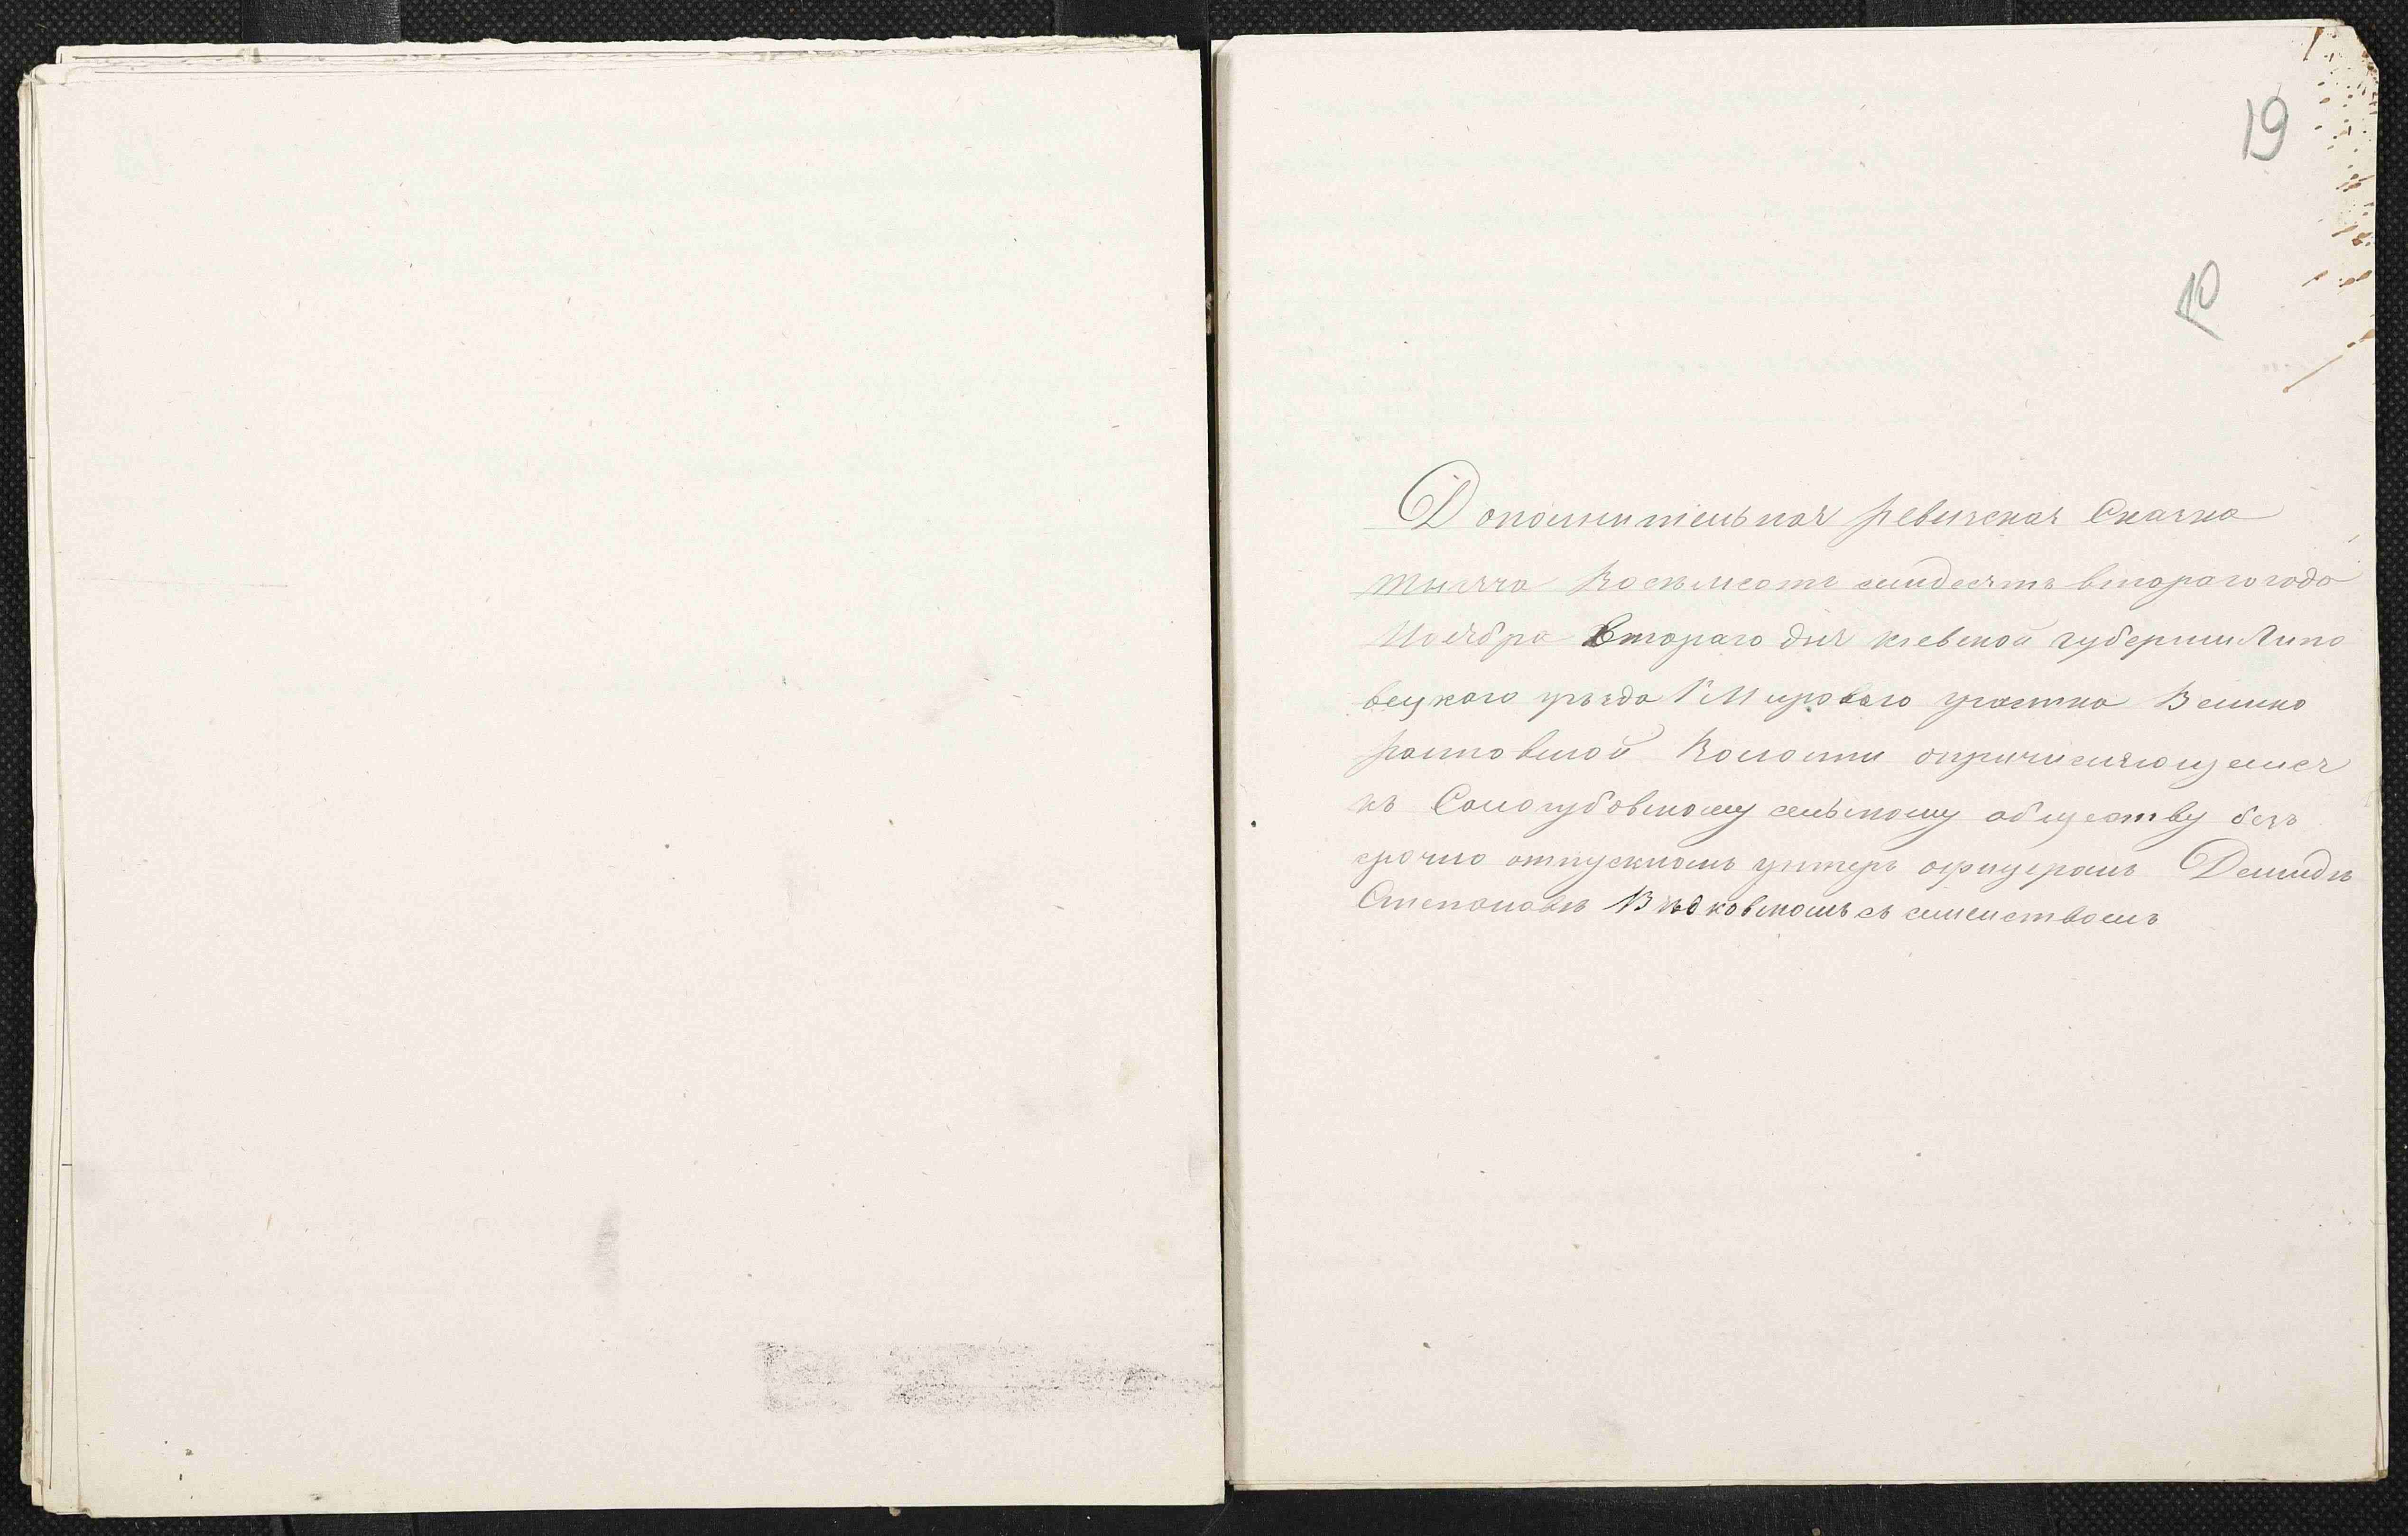 19
10
Дополнительная ревизская Сказка
тысяча Восемьсотъ семдесятъ втораго года
Ноября Втораго дня киевской губернии Липо
вецкаго уѣзда 1 Мироваго участка Велико
ростовской Волости опричисляющемся
къ Сологубовскому сельскому обществу без
срочно отпускномъ унтеръ офицерамъ Демидѣ
Степановѣ Вѣдковскомъ съ симействомъ